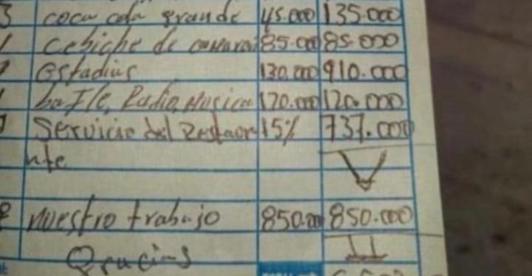 3 coca cola grande 45.000 135.000
cebiche de camaron 85.000 85.000
Estadius 130.000 910.000
La Tle, Radio, Musica 120.000 120.000
Servicio del Restaura 15% 737.000
nte
nuestro trabajo 850.000 850.000
Gracias